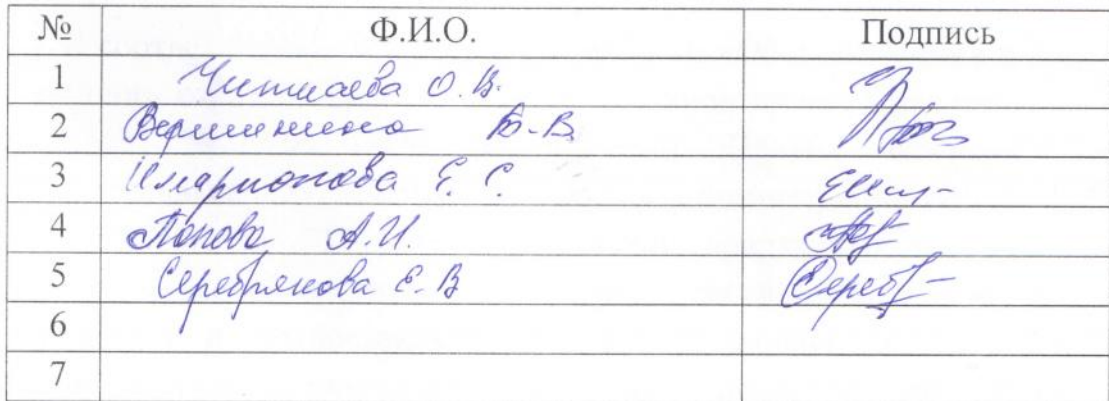 № Ф.И.О. Подпись
1 О.В.
2 Вершинина В.
3 Иларионова Е. С.
4 Попова А.И.
5 Серебрякова Е.В Сереб
6
7